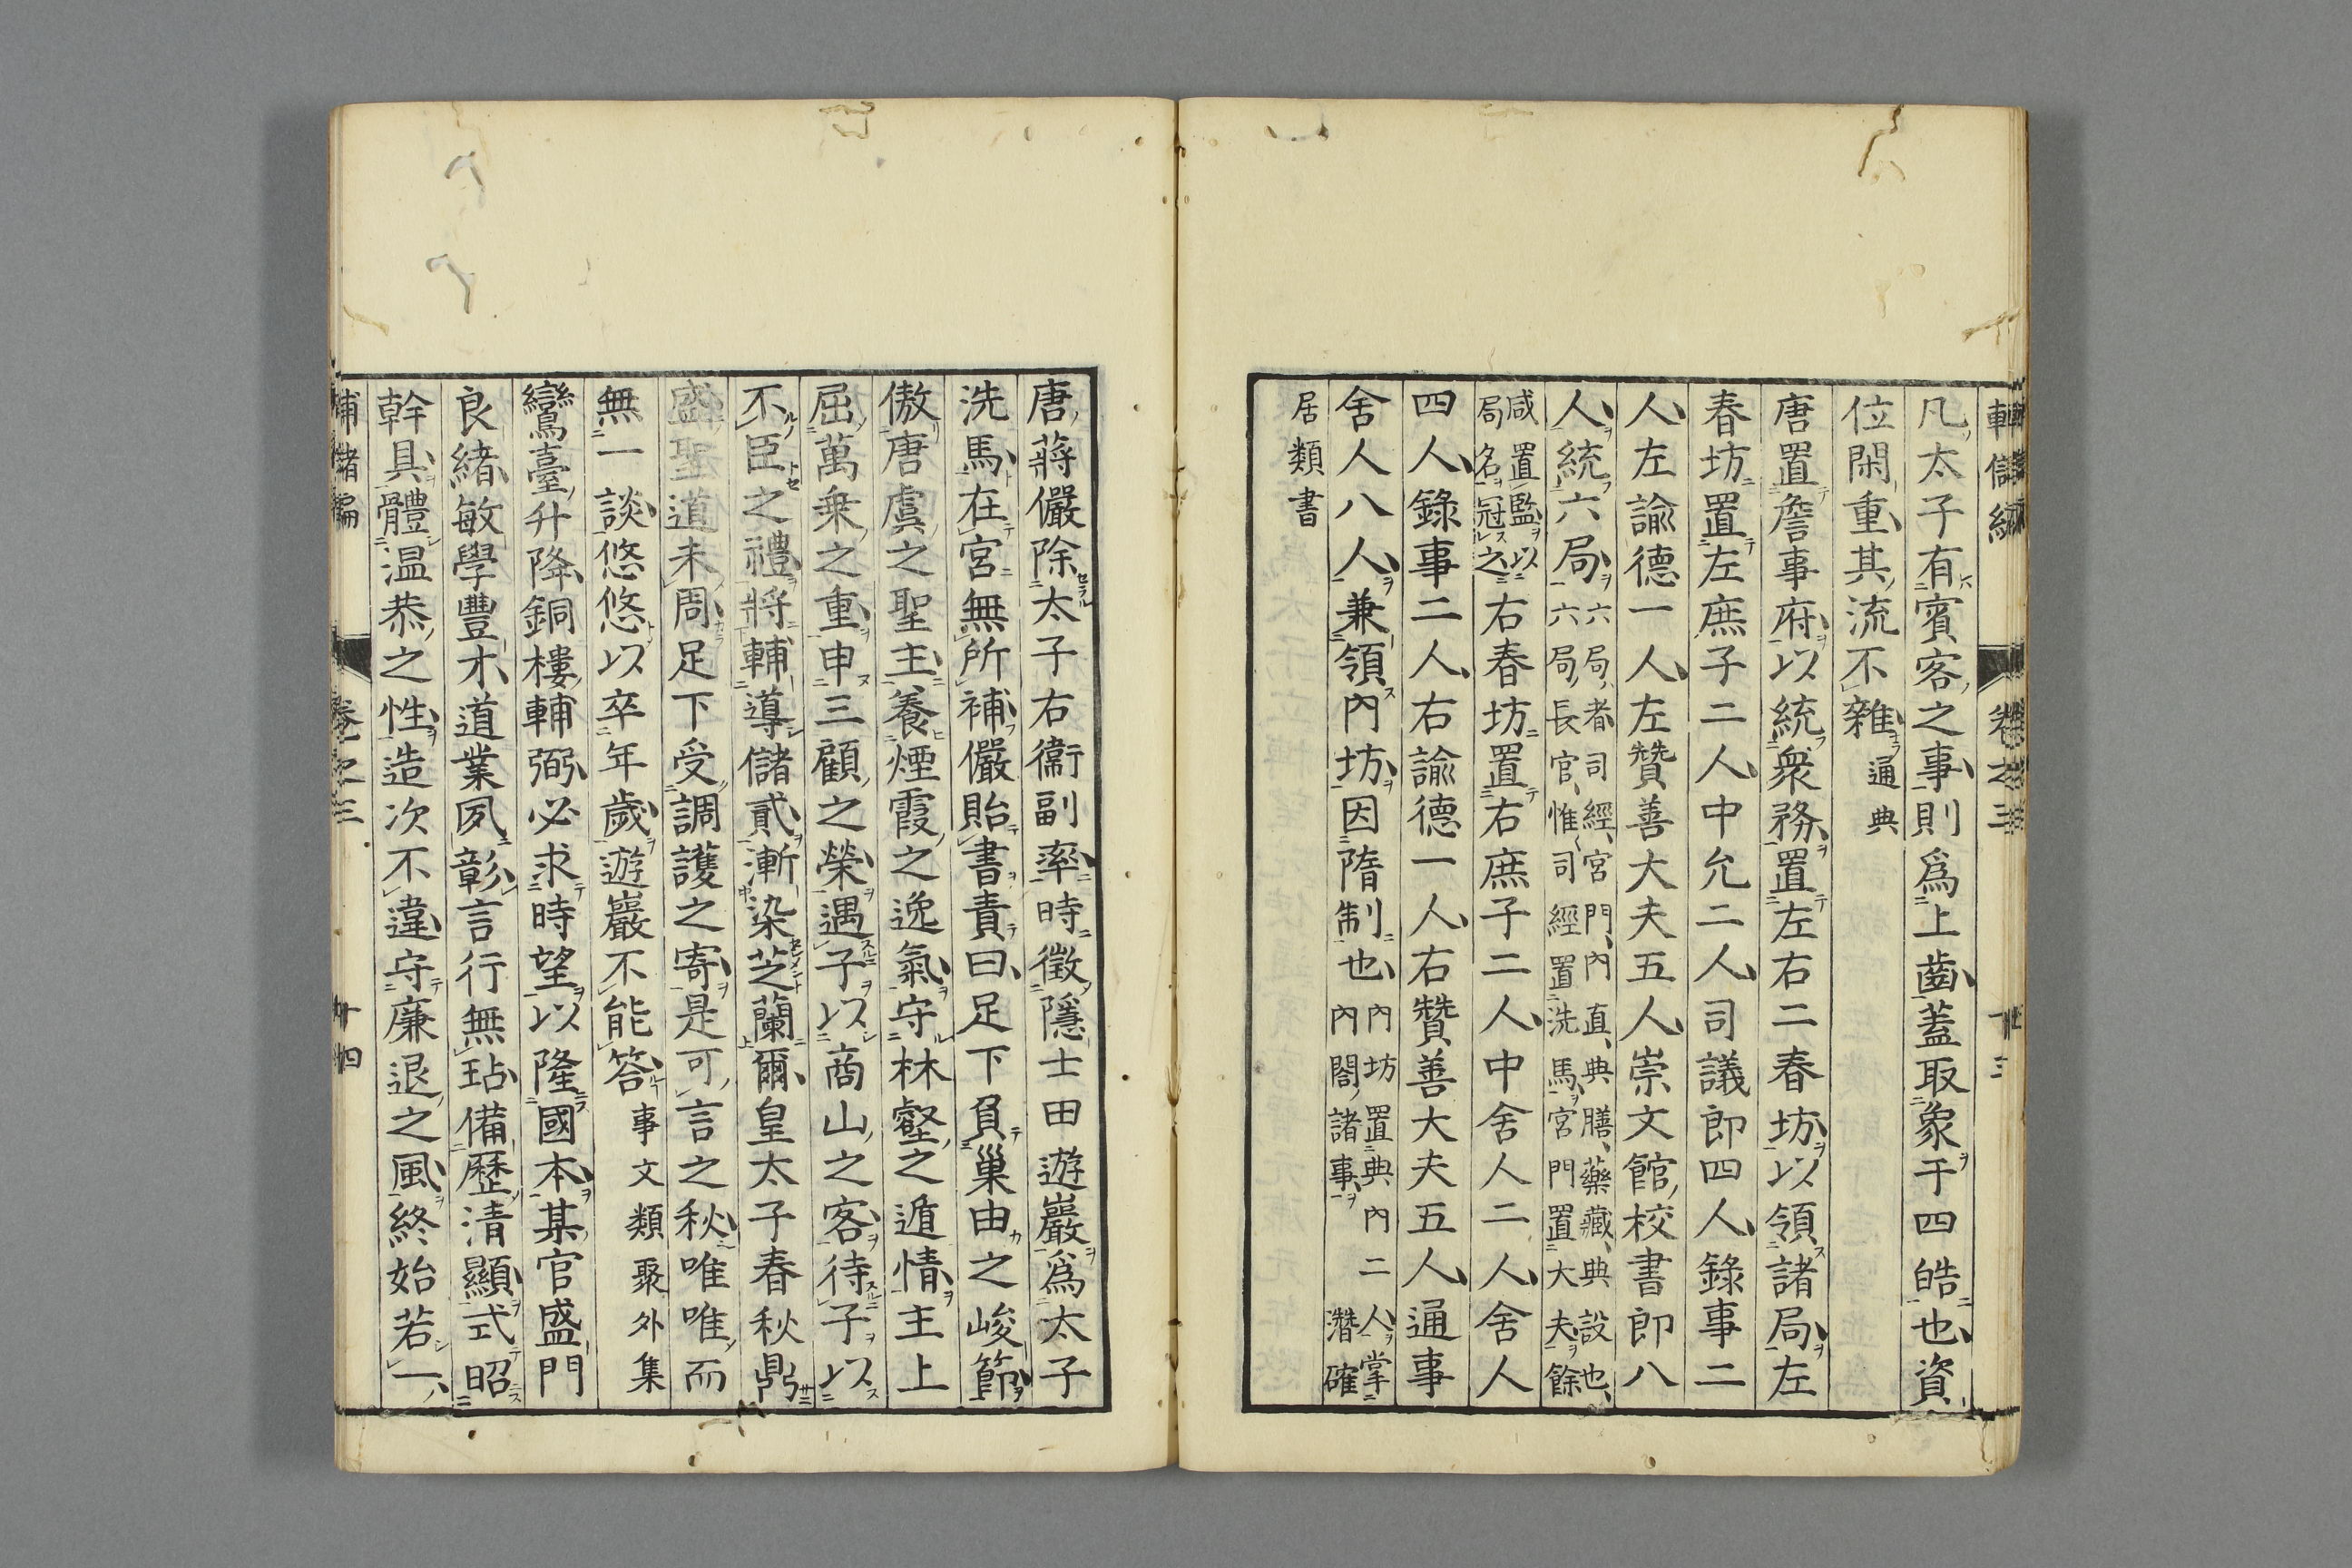 輔儲編 卷之三 十三
凡太子有賓客之事則爲上齒蓋取象于四皓也資
位閑重其流不雜通典
唐置詹事府以統衆務置左右二春坊以領諸局左
春坊置左庶子二人中允二人司議郎四人錄事二
人左諭德一人左贊善大夫五人崇文館校書郎八
人統六局六局者司經宮門內直典膳藥藏典設也
六局長官惟司經置洗馬宮門置大夫餘
咸置監以
局名冠之右春坊置右庶子二人中舍人二人舍人
四人錄事二人右諭德一人右贊善大夫五人通事
舍人八人兼領內坊因隋制也內坊置典內二人掌
內閤諸事潛確
居類書
唐蔣儼除太子右衞副率時徵隱士田遊巖爲太子
洗馬在宮無所補儼貽書責曰足下負巢由之峻節
傲唐虞之聖主養煙霞之逸氣守林壑之遁情主上
屈萬乗之重申三顧之榮遇子以商山之客待子以
不臣之禮將輔導儲貳漸染芝蘭爾皇太子春秋鼎
盛聖道未周足下受調護之寄是可言之秋唯唯而
無一談悠悠以卒年歲遊巖不能答事文類聚外集
鸞臺升降銅樓輔弼必求時望以隆國本某官盛門
良緒敏學豐才道業夙彰言行無玷備歷清顯式昭
幹具體温恭之性造次不違守廉退之風終始若一
輔儲編 卷之三 十四